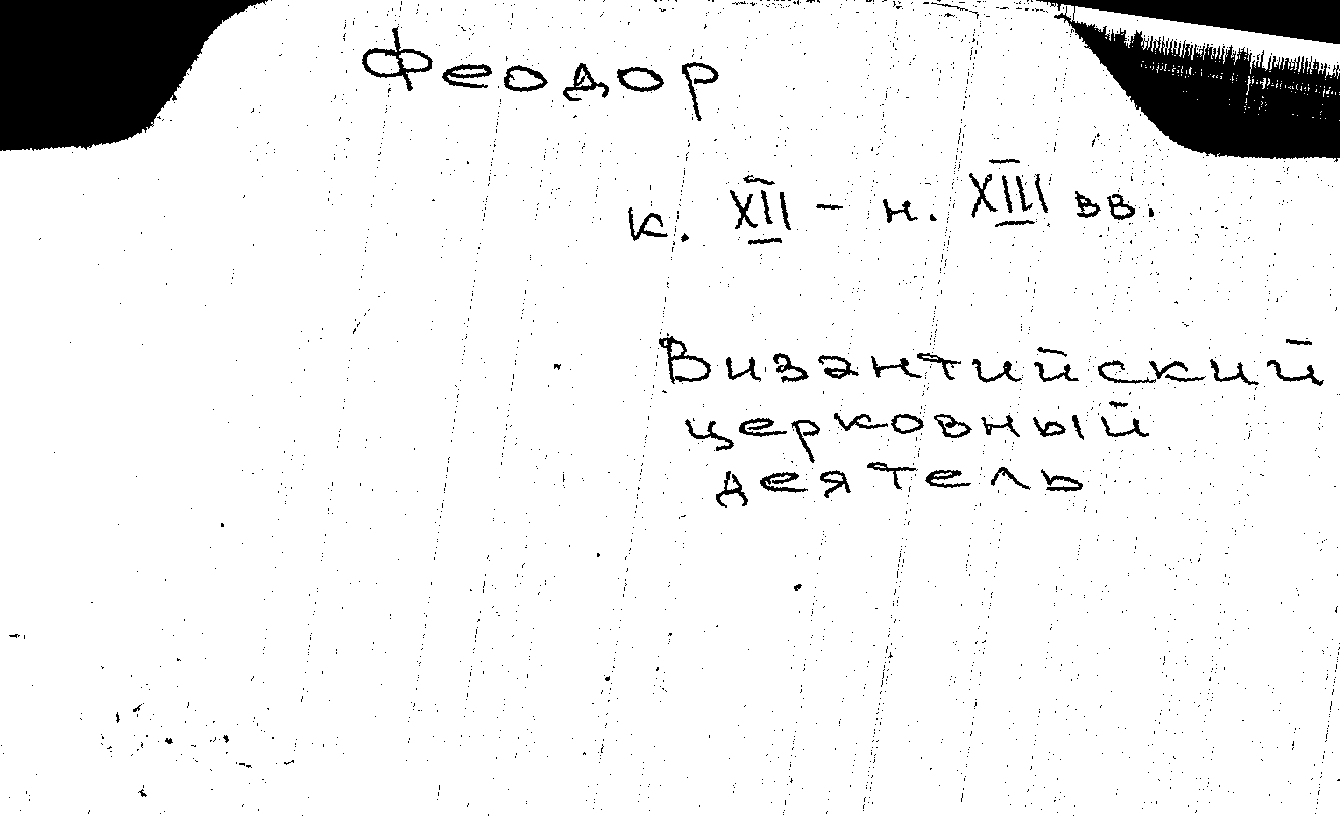 Феодор
к. XII - н. XIII вв.
Византийский
церковный
деятель